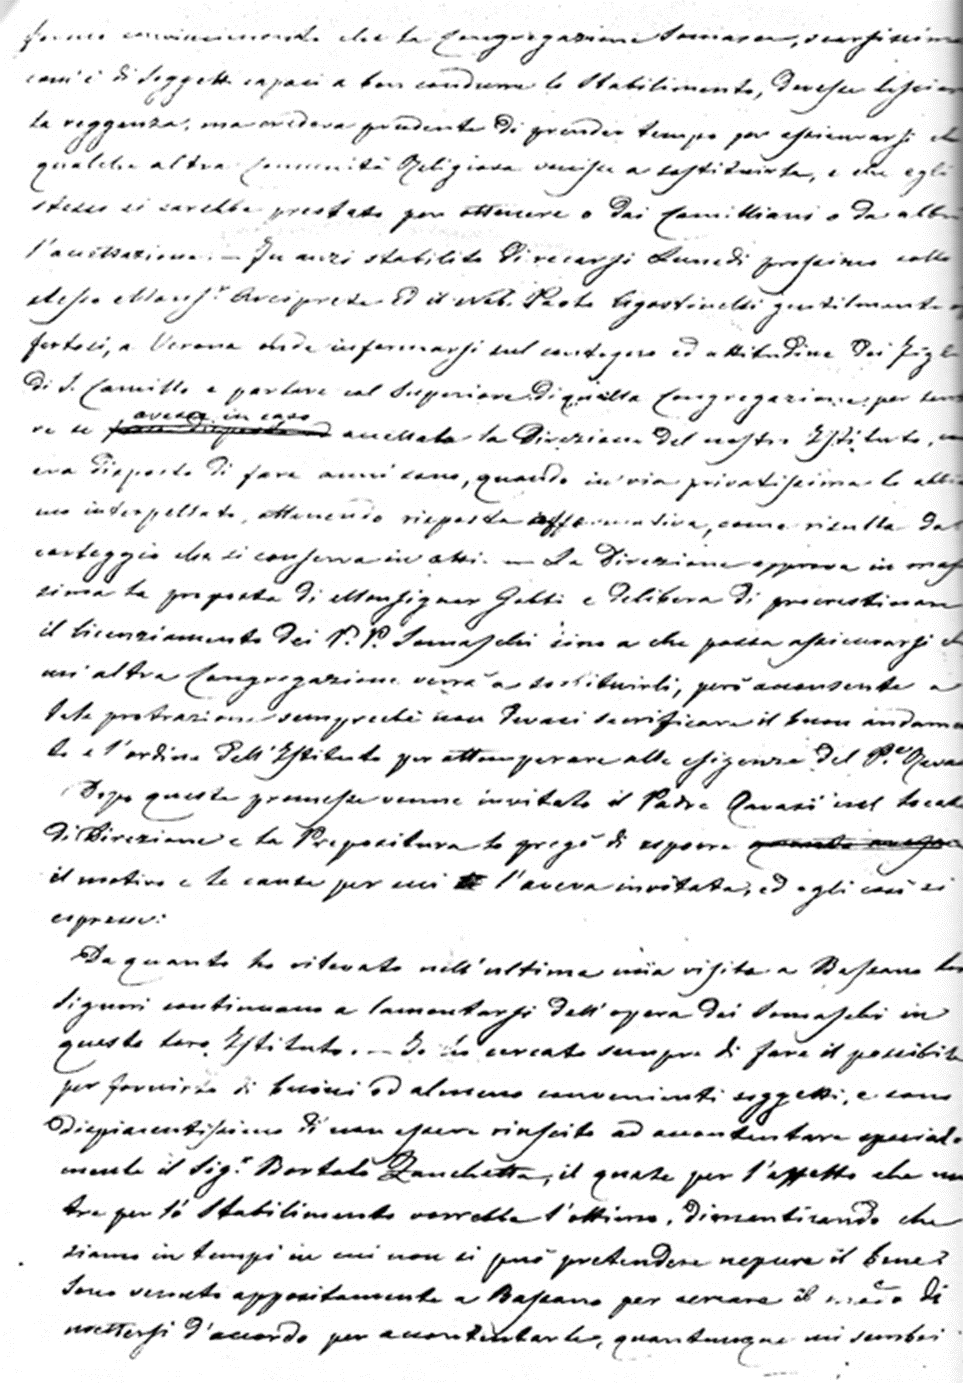 fermo convincimento che la Congregazione Somasca, scarsissima
com'è di soggetti capaci a ben condurre lo Stabilimento, dovesse lasciar
la reggenza, ma credeva prudente di prender tempo per assicurarsi che
qualche altra Comunità Religiosa venisse a sostituirla, e che egli
stesso si sarebbe prestato per ottenere o dai Camilliani o da altri
l'accettazione. — Fu anzi stabilito di recarsi Lunedì prossimo collo
stesso Monsr. Arciprete ed il Nob. Paolo Agostinelli gentilmente of
fertosi, a Verona onde informarsi sul contegno ed attitudine dei Figli
di S. Camillo e parlare col Superiore di quella Congregazione per sent
avesse in caso
re se accettata la Direzione del nostro Istituto, com
era disposto di fare anni sono, quando in via privatissima lo abbia
mo interpellato, ottenendo risposta affermativa, come risulta dal
carteggio che si conserva in atti. — La Direzione approva in mas
sima la proposta di Monsignor Gobbi e delibera di procrastinare
il licenziamento dei P. P. Somaschi sino a che possa assicurarsi ch
un'altra Congregazione verrà a sostituirli, però acconsente a
tale protrazione sempreché non devasi sacrificare il buon andamen
to e l'ordine dell'Istituto per ottemperare alle esigenze del P.e Ravasi
Dopo queste premesse venne invitato il Padre Ravasi nel locale
di Direzione e la Prepositura lo pregò di esporre
il motivo e le cause per cui l'aveva invitata, ed egli così si
espresse:
Da quanto ho rilevato nell'ultima mia visita a Bassano lor
Signori continuano a lamentarsi dell'opera dei Somaschi in
questo loro Istituto. — Io ho cercato sempre di fare il possibile
per fornirlo di buoni od almeno convenienti soggetti, e sono
dispiacentissimo di non essere riuscito ad accontentare special-
mente il Sigr. Bortolo Zanchetta, il quale per l'affetto che nu
tre per lo Stabilimento vorrebbe l'ottimo, dimenticando che
siamo in tempi in cui non si può pretendere nepure il bene.
Sono venuto appositamente a Bassano per cercare il modo di
mettersi d'accordo per accontentarlo, quantunque mi sembri